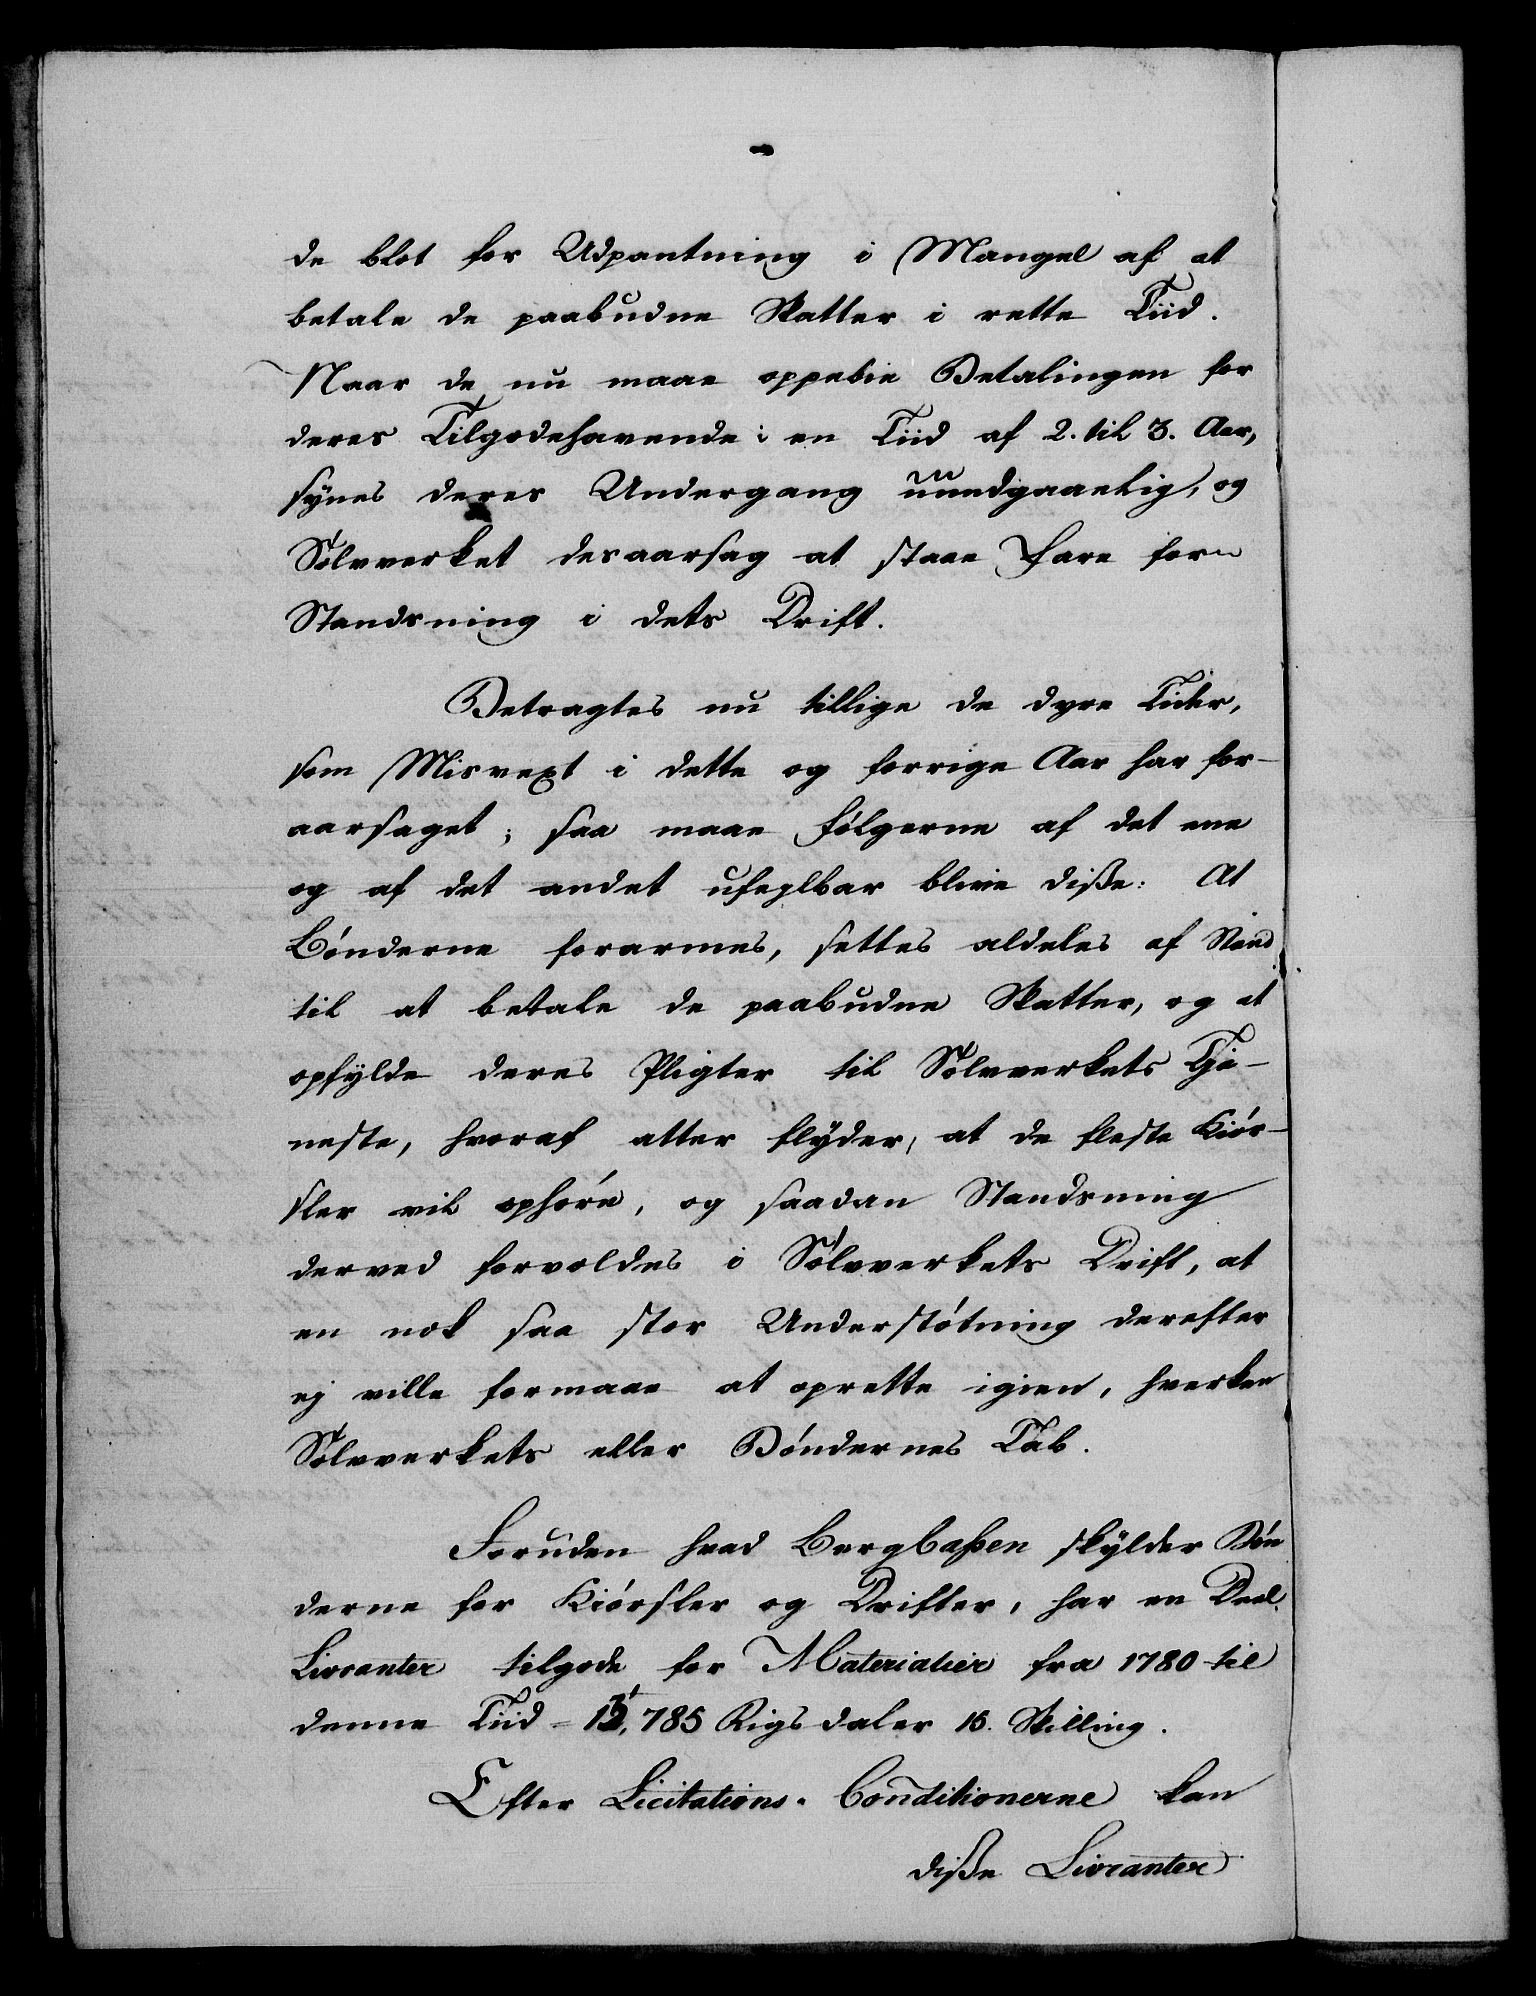 de blot for Udpantning i Mangel af at
betale de paabudne Skatter i rette Tiid.
Naar de nu maae oppebie Betalingen for
deres Tilgodehavende i en Tiid af 2. til 3. Aar,
synes deres Undergang uundgaaelig, og
Sølvverket desaarsag at staae Fare for
Standsning i dets Drift.
Betragtes nu tillige de dyre Tider,
som Misvext i dette og forrige Aar har for-
aarsaget; saa maae Følgerne af det ene
og af det andet ufeylbar blive diße: At
Bønderne forarmes, settes aldeles af Stand
til at betale de paabudne Skatter, og at
opfylde deres Pligter til Sølvverkets Tje-
neste, hvoraf atter flyder, at de fleste Kiør-
sler vil ophøre, og saadan Standsning
derved forvoldes i Sølvverkets Drift, at
en nok saa stor Understøtning derefter
ej ville formaae at oprette igien, hverken
Sølvverkets eller Bøndernes Tab.
Foruden hvad Bergkaßen skylder Bøn
derne for Kiørsler og Drifter, har en Deel
Livranter tilgode for Materialier fra 1780 til
denne Tiid - 13,785 Rigsdaler 15. Skilling.
Efter Licitations-Conditionerne kan
diße Livranter